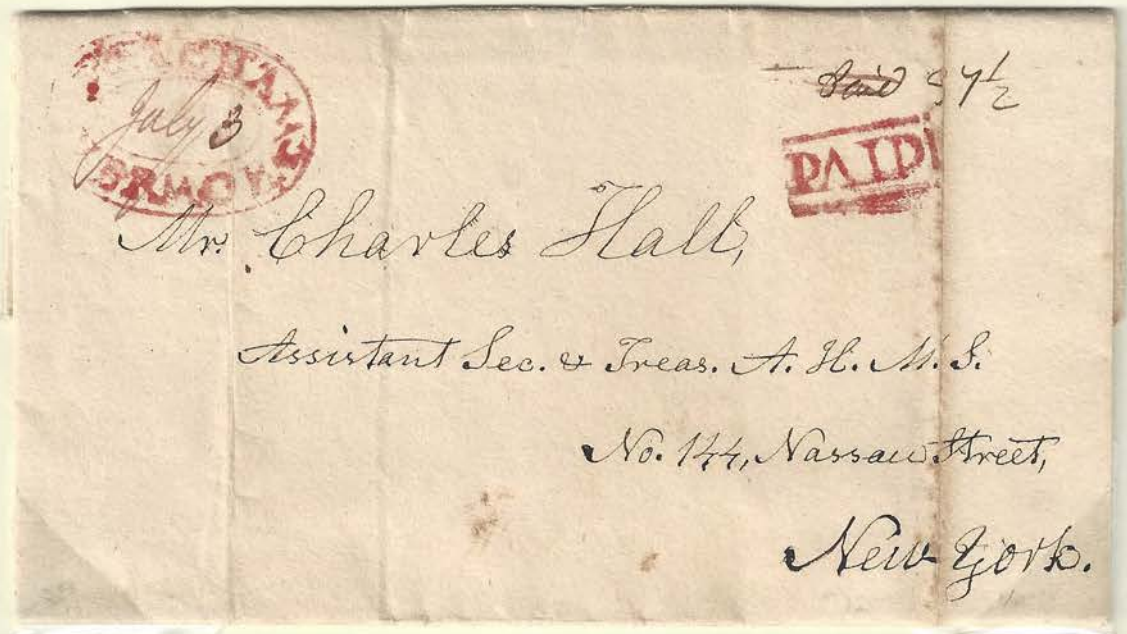 July 3
Paid 37 1/2
PAID
Mr. Charles Hall,
Assistant Sec. & Treas. A. H. M. S.
No. 144, Nassau Street,
New York.